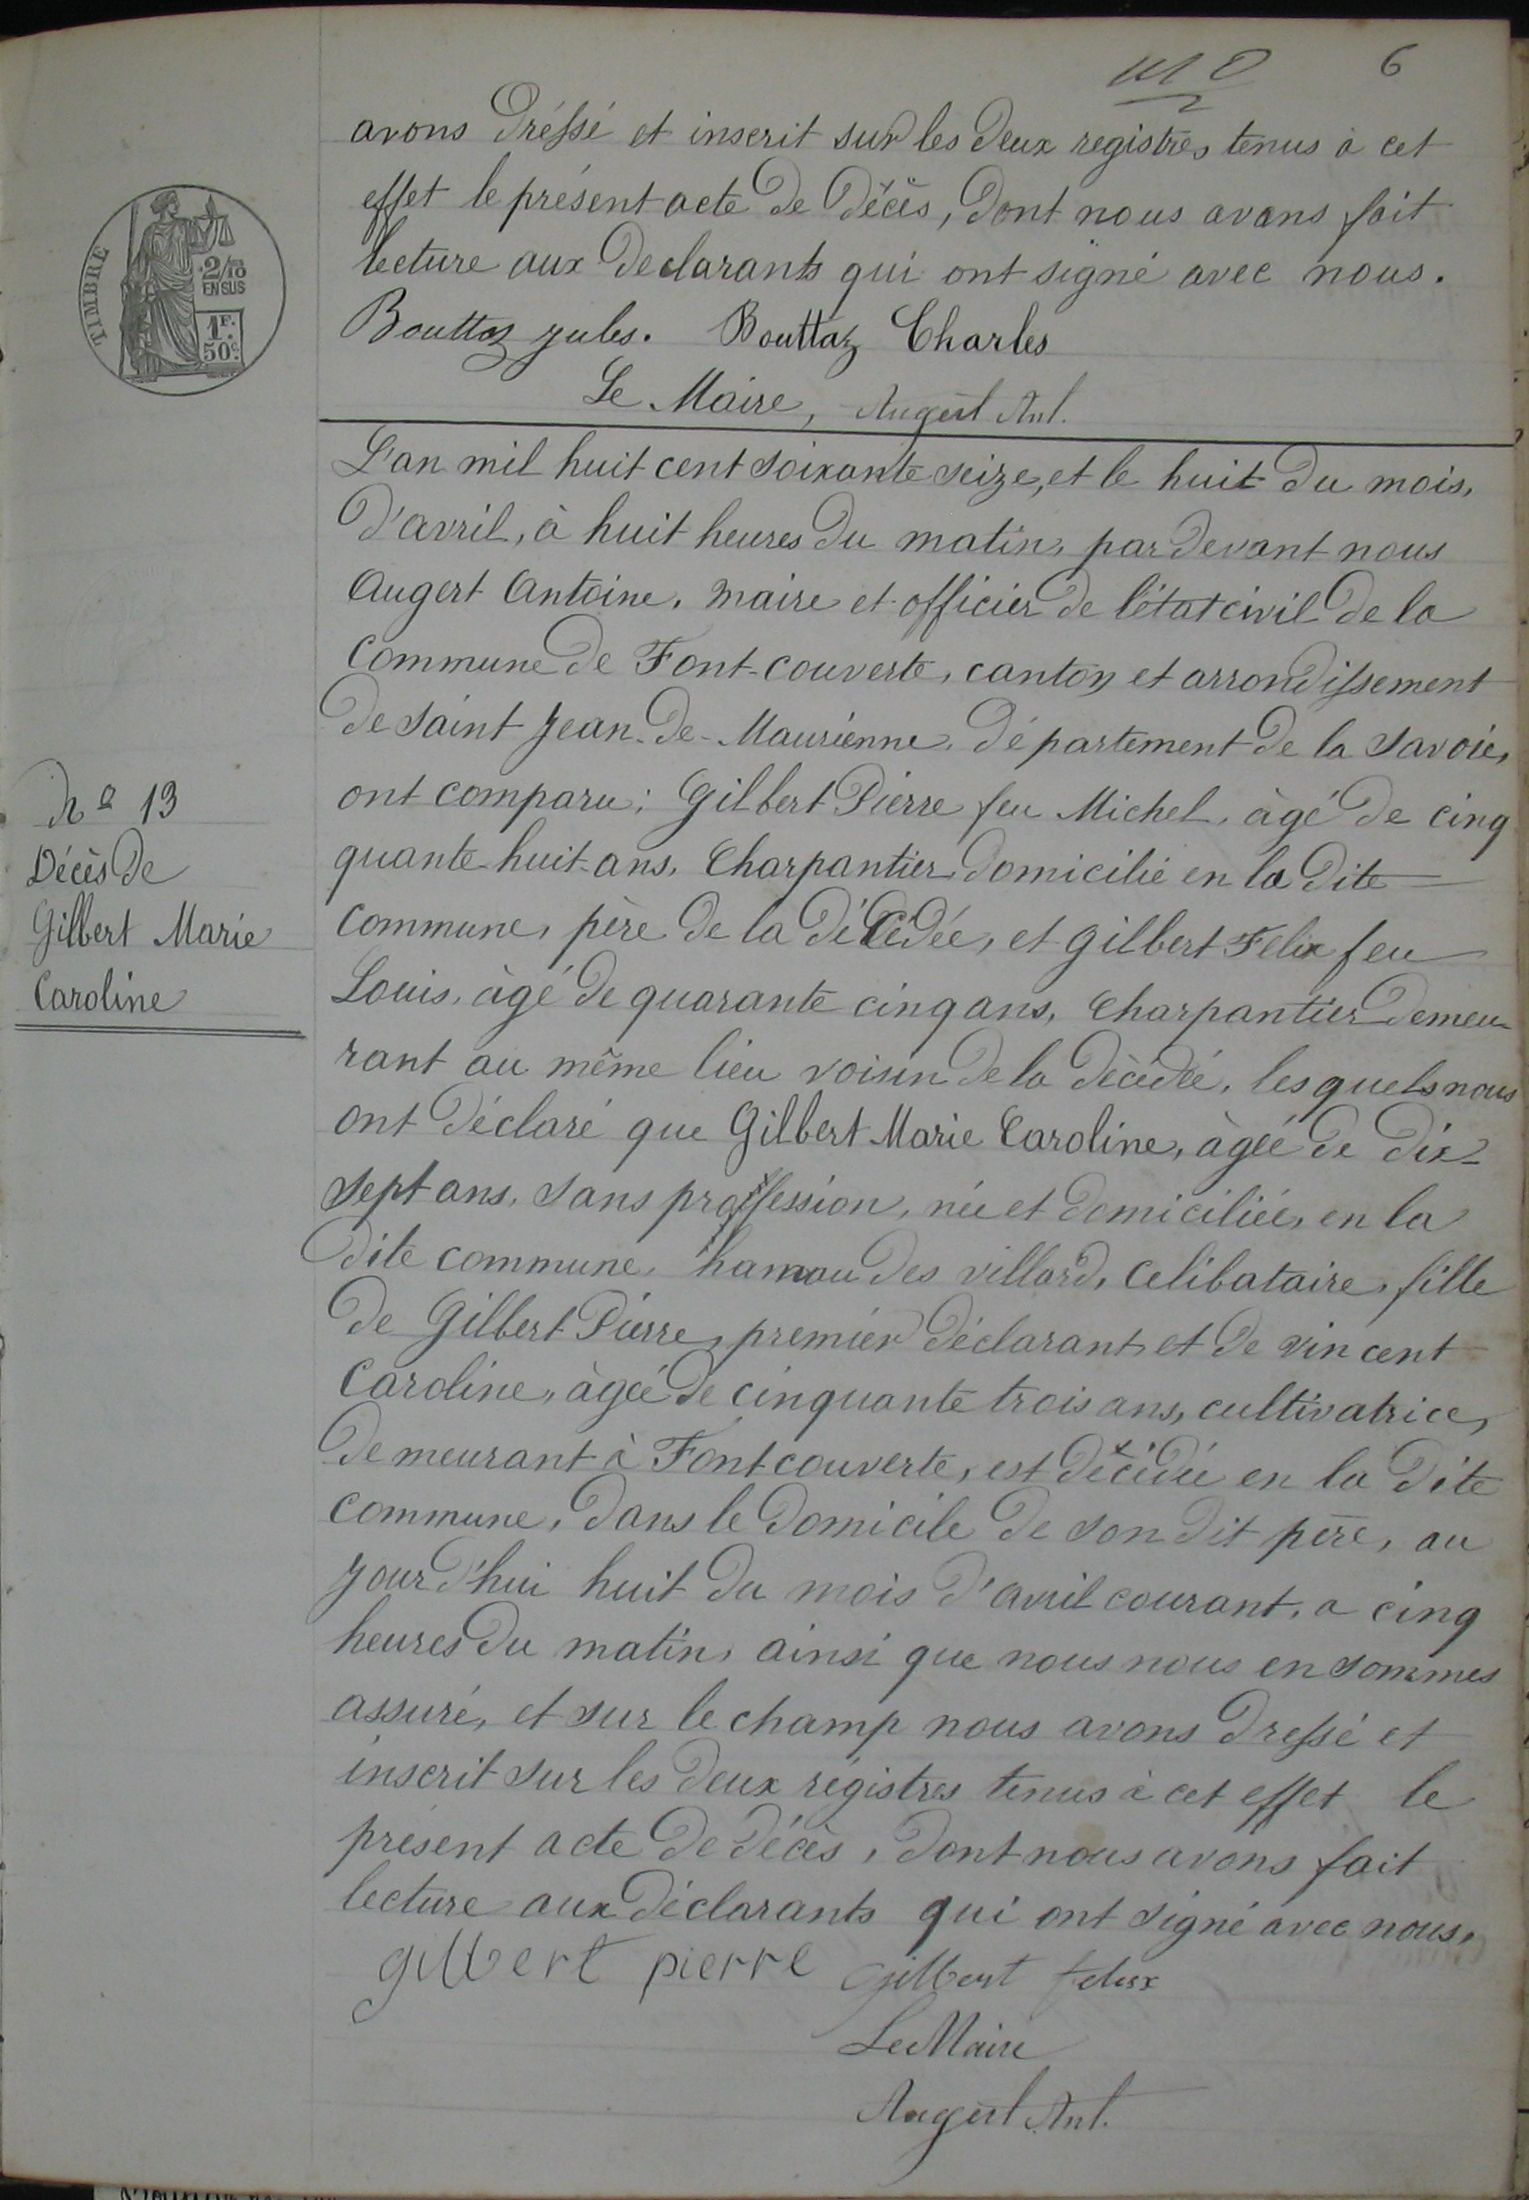 6
avons dréssé et inscrit sur les deux registres tenus à cet
effet le présent acte de décès, dont nous avons fait
lecture aux declarants qui ont signé avec nous.
Bouttaz jules. Bouttaz Charles
Le Maire, Augert Ant.
TIMBRE
2/10
EN SUS
1F.
50c.
L'an mil huit cent soixante seize, et le huit du mois,
d'avril, à huit heures du matin, pardevant nous
Augert Antoine, maire et officier de l'état civil de la
commune de Font-couverte, canton et arrondissement
de saint Jean-de-Maurienne, département de la savoie,
ont comparu: Gilbert Pierre feu Michel, àgé de cinq
quante-huit ans, Charpantier domicilié en la dite
commune, père de la décédée, et gilbert Felix feu
Louis, àgé de quarante cinq ans, Charpantier demeu-
rant au même lieu voisin de la décédée, les quels nous
ont déclaré que Gilbert Marie Caroline, àgée de dix-
sept ans, sans proffession, née et domiciliée, en la
dite commune, hamau des villard, celibataire, fille
de Gilbert Pierre, premier déclarant, et de vincent
Caroline, àgée de cinquante trois ans, cultivatrice,
demeurant à Fontcouverte, est décédée en la dite
commune, dans le domicile de son dit père, au
jourd'hui huit du mois d'avril courant, a cinq
heures du matin, ainsi que nous nous en sommes
assuré, et sur le champ nous avons dressé et
inscrit sur les deux régistres tenus à cet effet le
présent acte de décès, dont nous avons fait
lecture aux déclarants qui ont signé avec nous.
gilbert pierre gilbert felix
Le Maire
Augert Ant.
No 13
Décès de
Gilbert Marie
Caroline